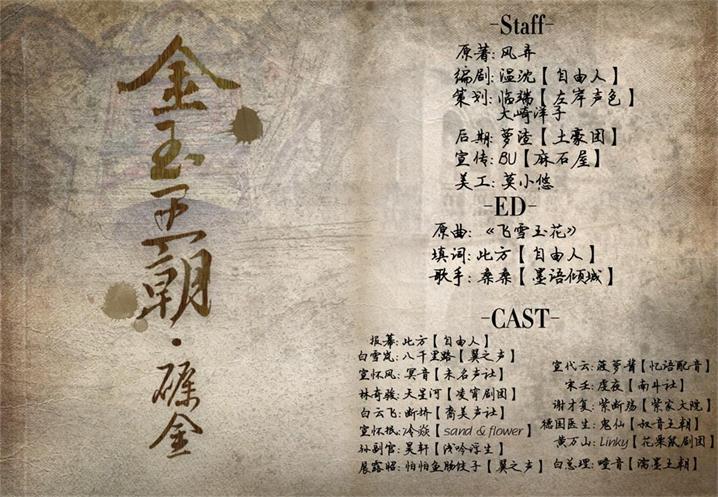 金玉王朝·砾金
-Staff-
原著:风弄
编剧:温沈【自由人】
策划:临瑞【左岸声色】
大崎洋子
后期:萝渣【土豪团】
宣传:BU【麻石屋】
美工:莫小悠
-ED-
原曲:《飞雪玉花》
填词:此方【自由人】
歌手:桑桑【墨语倾城】
-CAST-
报幕:此方【自由人】
白雪岚:八千里路【翼之声】
宣怀风:冥音【未名声社】
林奇骏:天星河【凌霄剧团】
白云飞:断桥【裔美声社】
宣怀抿:冷焱【sand & flower】
孙副官:吴轩【浅吟浮生】
展露昭:怕怕鱼肠饺子【翼之声】
宣代云:菠萝酱【忆语配音】
宋壬:虔夜【南斗社】
谢才复:紫断殇【紫家大院】
德国医生:鬼仙【叔音王朝】
黄万山:Linky【花栗鼠剧团】
白总理:喑音【濡墨王朝】